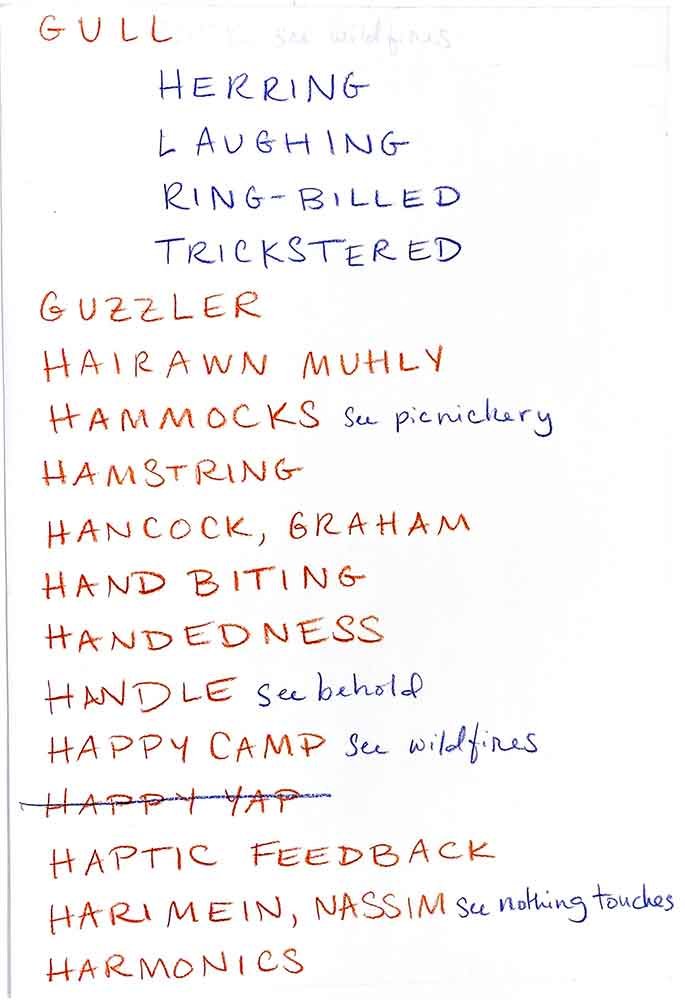 GULL
HERRING
LAUGHING
RING-BILLED
TRICKSTERED
GUZZLER
HAIRAWN MUHLY
HAMMOCKS see picnickery
HAMSTRING
HANCOCK, GRAHAM
HAND BITING
HANDEDNESS
HANDLE see behold
HAPPY CAMP see wildfires
HAPPY YAP
HAPTIC FEEDBACK
HARIMEIN, NASSIM see nothing touches
HARMONICS